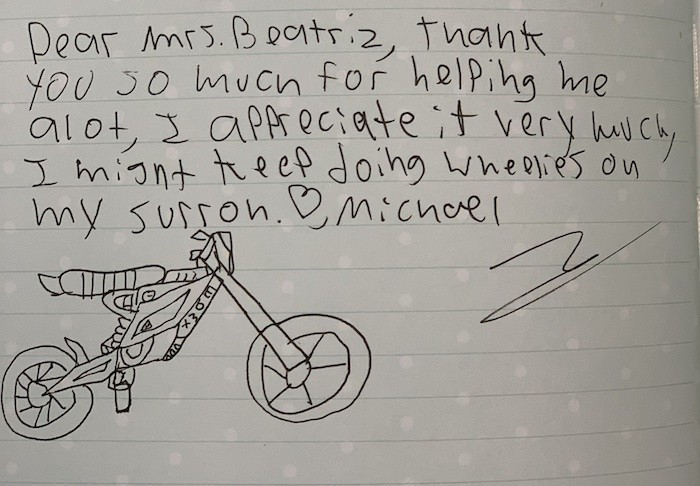 Dear Mrs. Beatriz, Thank
YOU SO much for helping me
alot, I appreciate it very much,
I might keep doing wheelies on
my surron. ♡, Michael